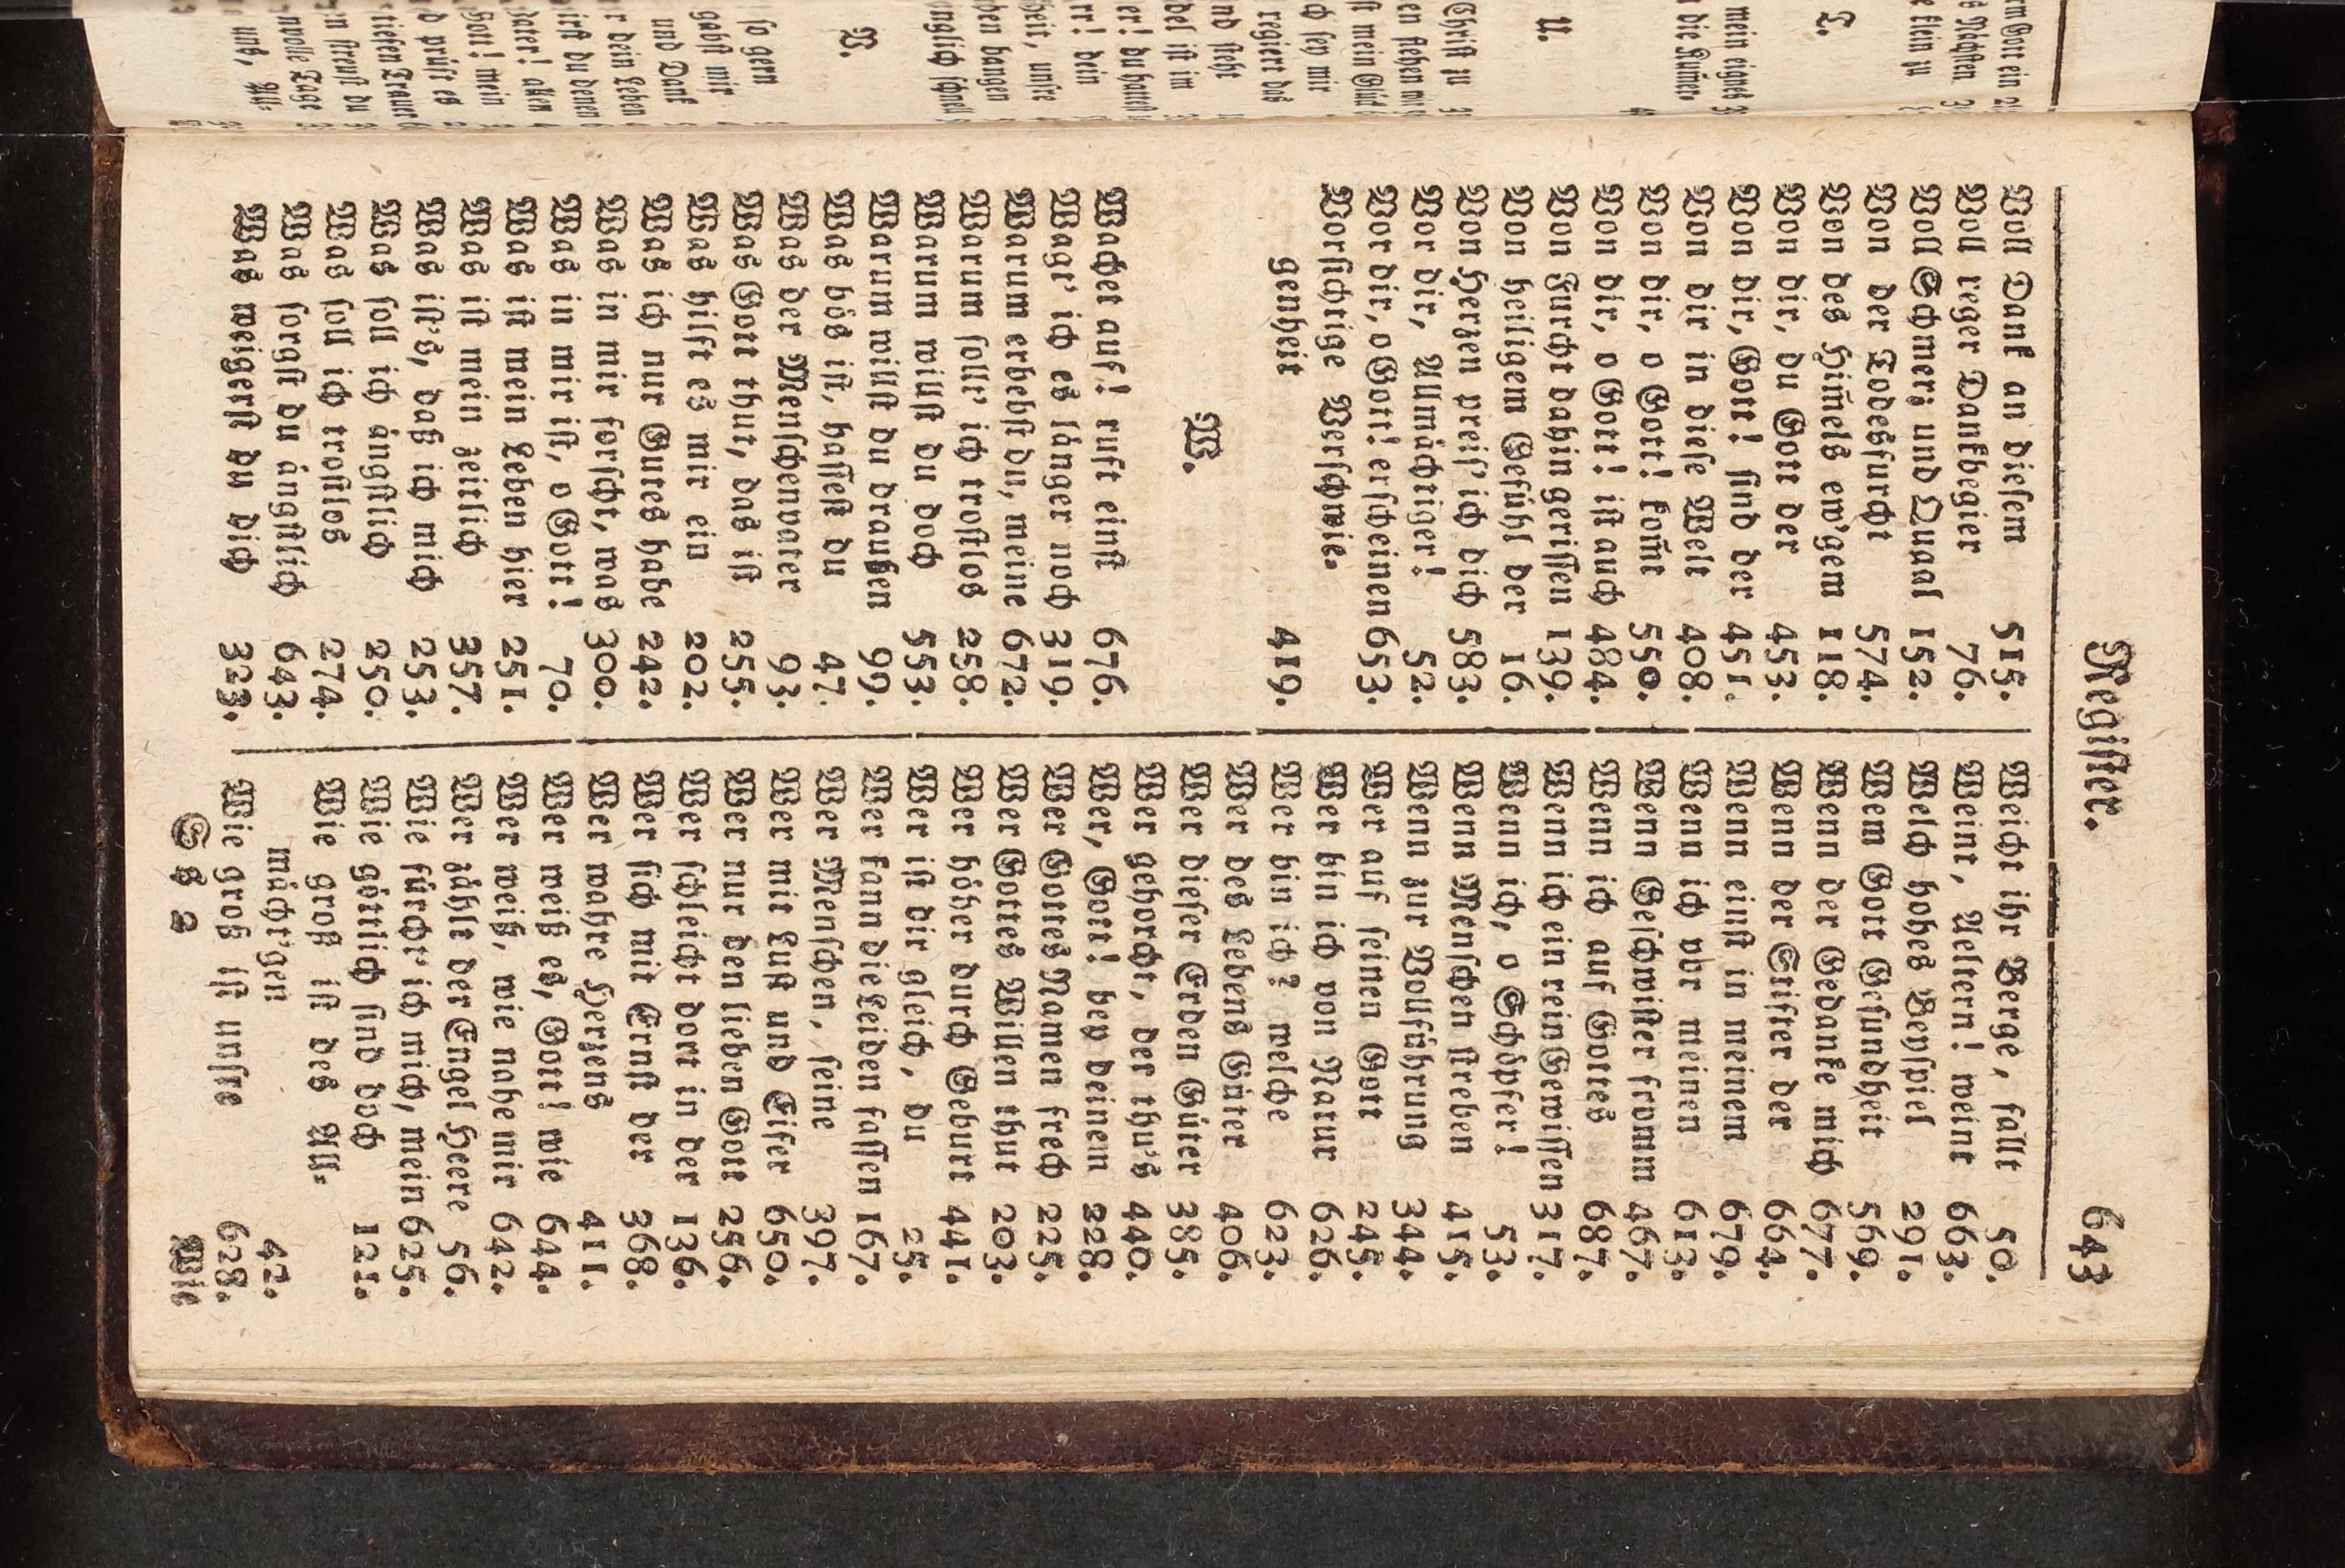 Register.
643
Voll Dank an diesem 515.
Voll reger Dankbegier 76.
Voll Schmerz und Quaal 152.
Von der Todesfurcht 574.
Von des Him̄els ew'gem 118.
Von dir, du Gott der 453.
Von dir, Gott! sind der 451.
Von dir in diese Welt 408.
Von dir, o Gott! kom̄t 550.
Von dir, o Gott! ist auch 484.
Von Furcht dahin gerissen 139.
Von heiligem Gefühl der 16.
Von Herzen preis' ich dich 583.
Vor dir, Allmächtiger! 52.
Vor dir, o Gott! erscheinen 653.
Vorsichtige Verschwie-
genheit 419.
W.
Wachet auf! ruft einst 676.
Wagt' ich es länger noch 319.
Warum erbebst du, meine 672.
Warum sollt' ich trostlos 258.
Warum willst du doch 553.
Warum willst du draußen 99.
Was bös ist, hassest du 47.
Was der Menschenvater 93.
Was Gott thut, das ist 255.
Was hilft es mir ein 202.
Was ich nur Gutes habe 242.
Was in mir forscht, was 300.
Was in mir ist, o Gott! 70.
Was ist mein Leben hier 251.
Was ist mein zeitlich 357.
Was ist's, daß ich mich 253.
Was soll ich ängstlich 250.
Was soll ich trostlos 274.
Was sorgst du ängstlich 643.
Was weigerst du dich 323.
Weicht ihr Berge, fallt 50.
Weint, Aeltern! weint 663.
Welch hohes Beyspiel 291.
Wem Gott Gesundheit 569.
Wenn der Gedanke mich 677.
Wenn der Stifter der 664.
Wenn einst in meinem 679.
Wenn ich vor meinen 613.
Wenn Geschwister fromm 467.
Wenn ich auf Gottes 687.
Wenn ich ein rein Gewissen 317.
Wenn ich, o Schöpfer! 53.
Wenn Menschen streben 415.
Wenn zur Vollführung 344.
Wer auf seinen Gott 245.
Wer bin ich von Natur 626.
Wer bin ich? welche 623.
Wer des Lebens Güter 406.
Wer dieser Erden Güter 385.
Wer gehorcht, der thu's 440.
Wer, Gott! bey deinem 228.
Wer Gottes Namen frech 225.
Wer Gottes Willen thut 203.
Wer höher durch Geburt 441.
Wer ist dir gleich, du 25.
Wer kann die Leiden fassen 167.
Wer Menschen, seine 397.
Wer mit Lust und Eifer 650.
Wer nur den lieben Gott 256.
Wer schleicht dort in der 136.
Wer sich mit Ernst der 368.
Wer wahre Herzens 411.
Wer weiß es, Gott! wie 644.
Wer weiß, wie nahe mir 642.
Wer zählt der Engel Heere 56.
Wie fürcht' ich mich, mein 625.
Wie göttlich sind doch 121.
Wie groß ist des All-
mächt'gen 42.
Wie groß ist unsre 628.
Ss 2
Wie